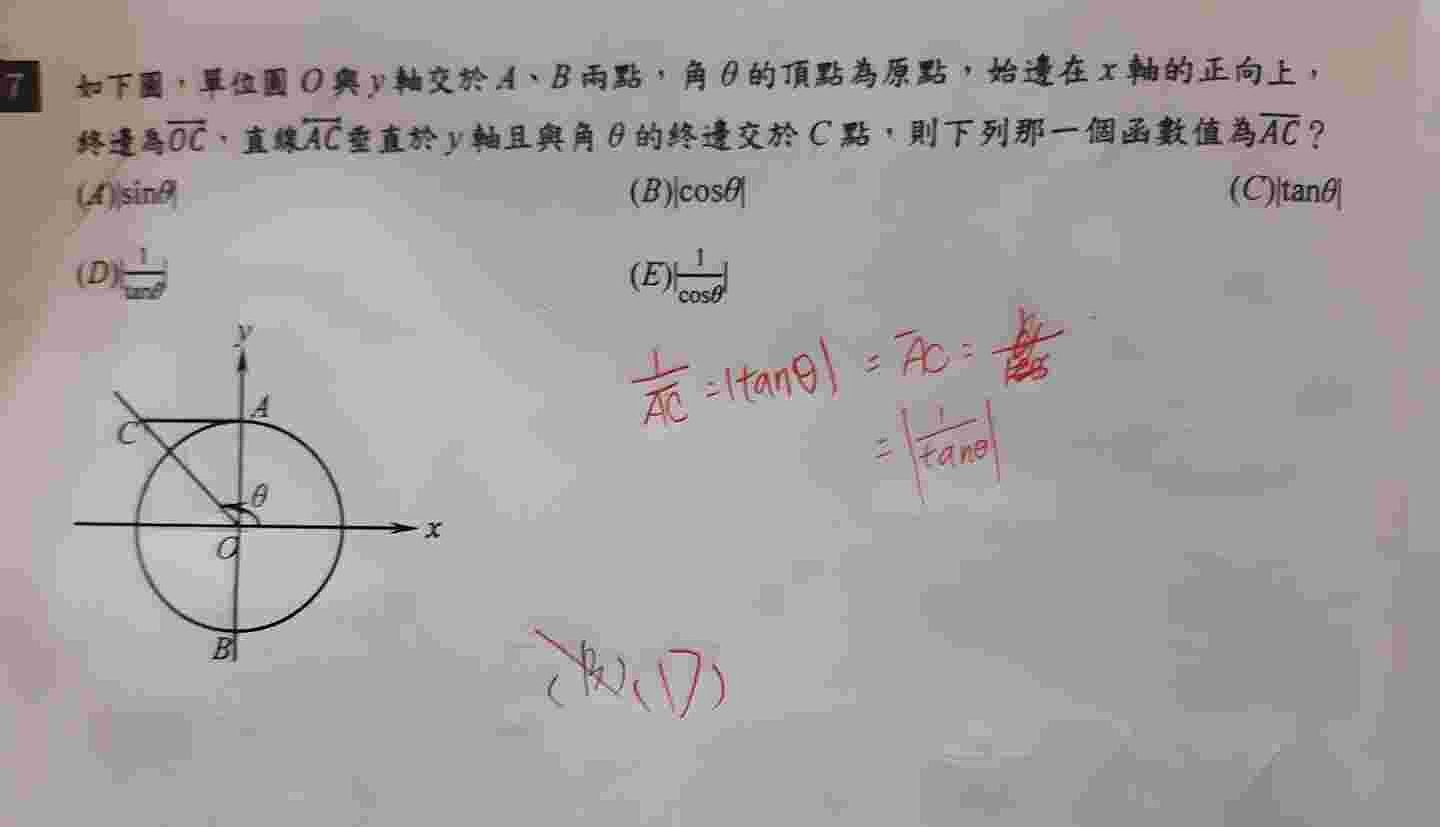 7 如下圖，單位圓 O 與 y 軸交於 A、B 兩點，角 θ 的頂點為原點，始邊在 x 軸的正向上，
終邊為OC、直線AC垂直於 y 軸且與角 θ 的終邊交於 C 點，則下列那一個函數值為AC？
(A)|sinθ| (B)|cosθ| (C)|tanθ|
(D)|1/tanθ| (E)|1/cosθ|
y
A
C
θ
x
O
B
1/AC = |tanθ| = AC =
= |1/tanθ|
(D)